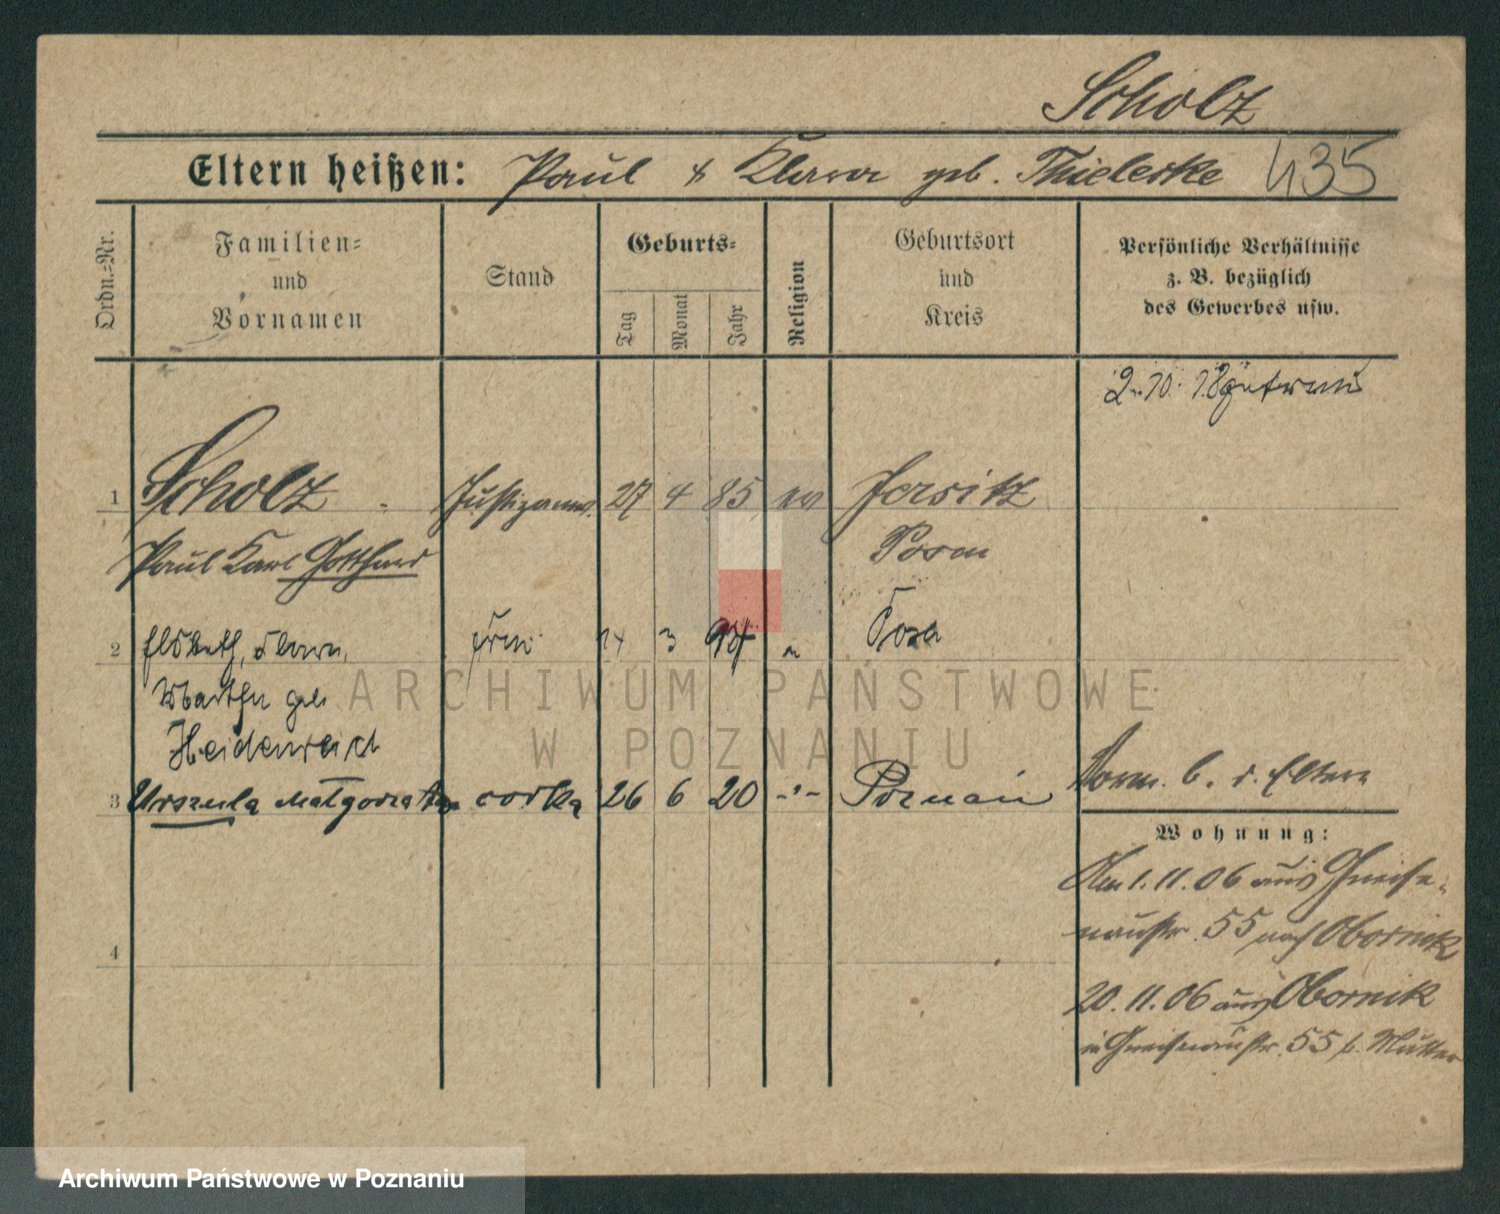 Scholz
Eltern heißen: Paul & Klara geb. Thieleske 435
Ordn.=Nr.
Familien=
und
Vornamen
Stand
Geburts=
Tag
Monat
Jahr
Religion
Geburtsort
und
Kreis
Persönliche Verhältnisse
z. B. bezüglich
des Gewerbes usw.
2. 10. 18
1 Scholz Justizanw. 27 4 85 ev Jersitz
Paul Karl Gotthard Posen
2 Elsbeth, Klara, frau 14 3 Posen
Martha geb
Heidenreich
3 Urszula Małgorzata corka 26 6 20 -"- Poznań
Vorm. b. d. Eltern
Wohnung:
Am 1. 11. 06 aus Gneise-
naustr. 55 nach Obornik
4
20. 11. 06 aus Obornik
in Gneisenaustr. 55 b. Mutter
ARCHIWUM PAŃSTWOWE
W POZNANIU
Archiwum Państwowe w Poznaniu